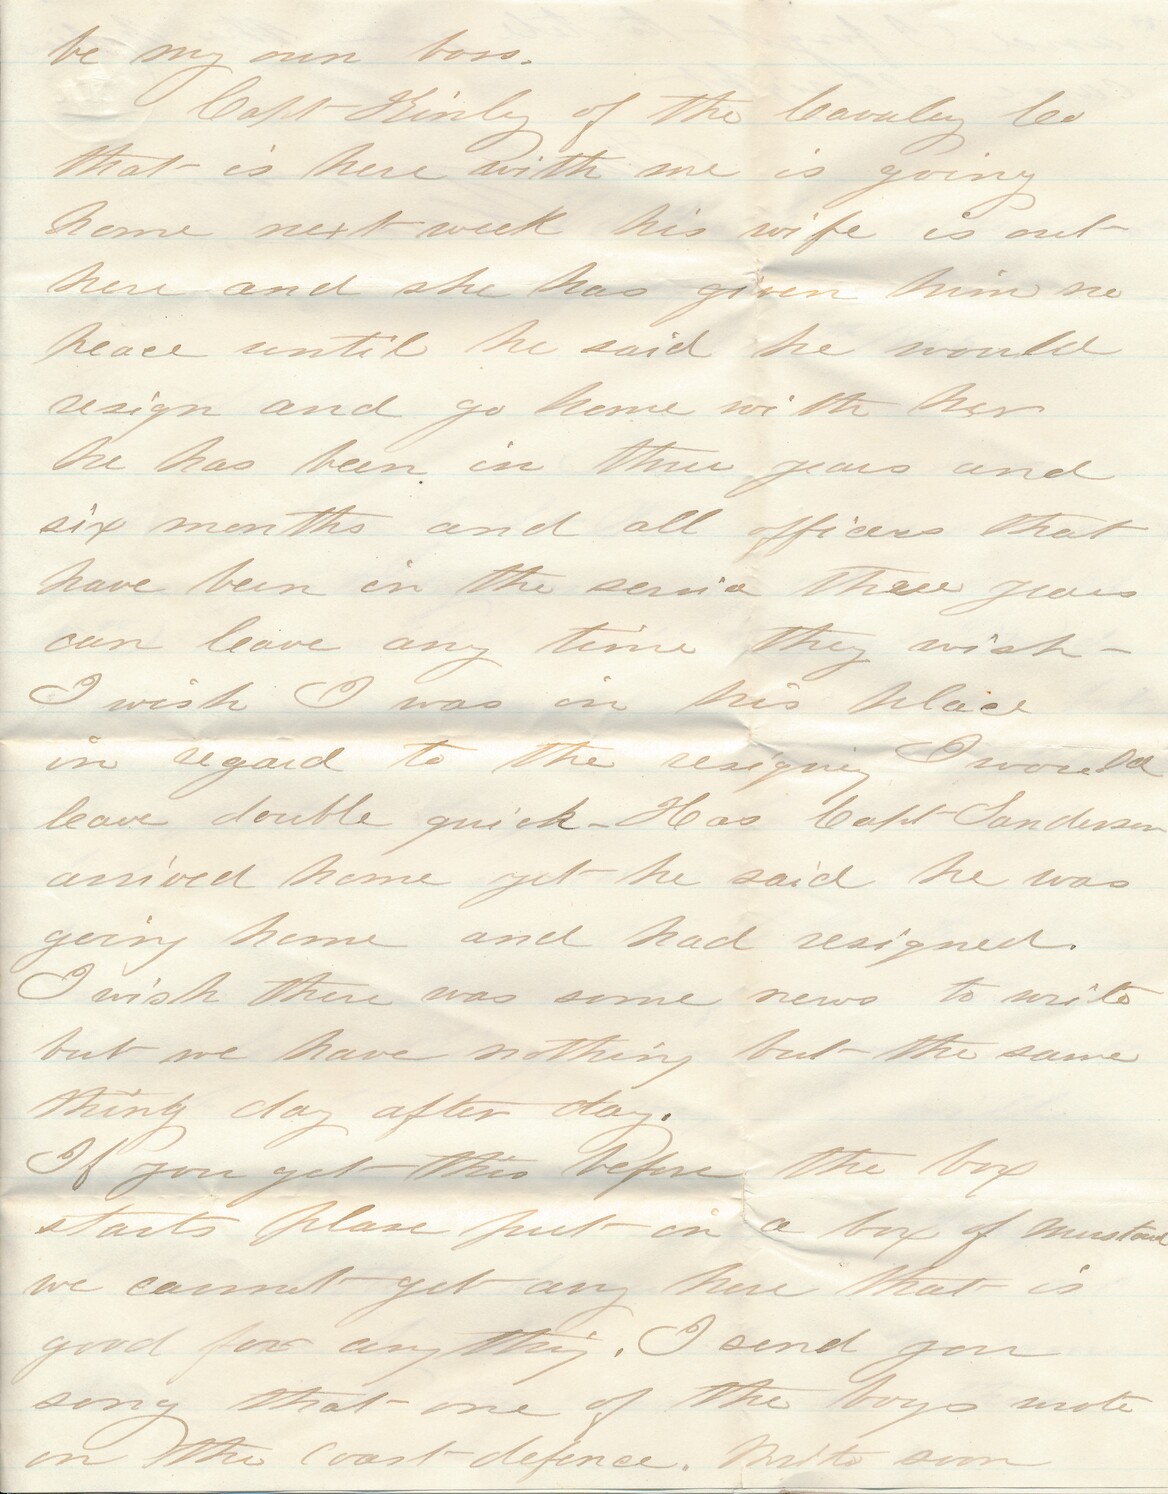 be my own boss.
Capt Kinly of the Cavaley Co
that is here with me is going
home next week his wife is out
here and she has given him no
peace until he said he would
resign and go home with her
he has been in three years and
six months and all officers that
have been in the servic three years
can leave any time they wish -
I wish I was in his place
in regard to the resigning I would
leave double quick - Has Capt Sanderson
arrived home yet he said he was
going home and had resigned.
I wish there was some news to write
but we have nothing but the same
thing day after day.
If you get this before the box
starts please put in a box of mustard
we cannot get any here that is
good for anything. I send you
song that one of the boys wrote
on the Coast defence. Write soon